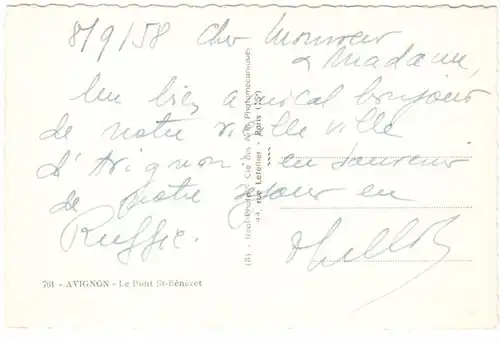 8/9/58 Cher Monsieur
& Madame,
Un bien amical bonjour
de notre vieille ville
d'Avignon, en souvenir
de notre séjour en
Russie.
701 - AVIGNON - Le Pont St-Bénézet
(B) - Real-Photo - Cie des Arts Photomécaniques
44, rue Letellier - Paris (15e)